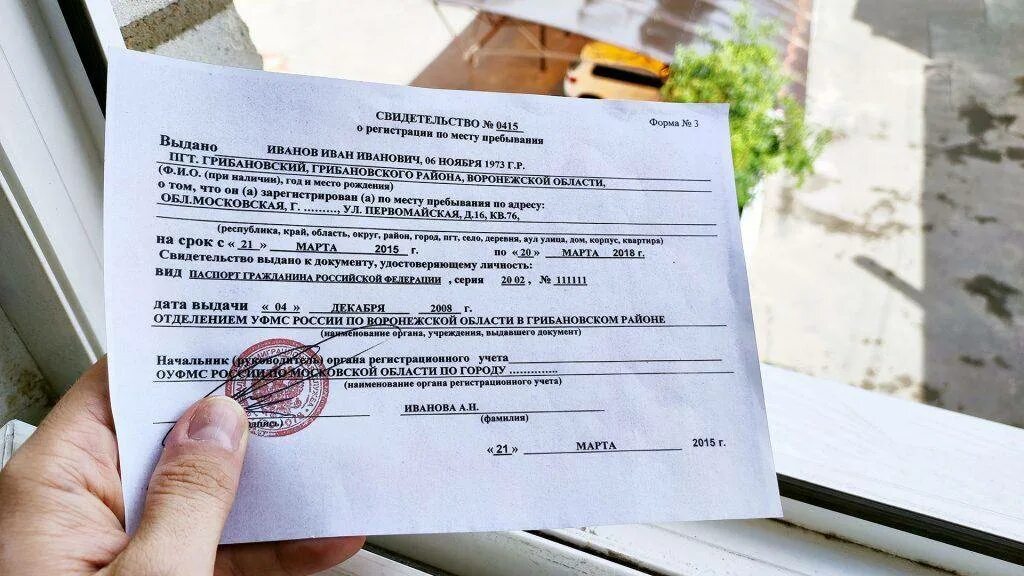 СВИДЕТЕЛЬСТВО № 0415
Форма № 3
о регистрации по месту пребывания
Выдано ИВАНОВ ИВАН ИВАНОВИЧ, 06 НОЯБРЯ 1973 Г.Р.
ПГТ. ГРИБАНОВСКИЙ, ГРИБАНОВСКОГО РАЙОНА, ВОРОНЕЖСКОЙ ОБЛАСТИ,
(Ф.И.О. (при наличии), год и место рождения)
о том, что он (а) зарегистрирован (а) по месту пребывания по адресу:
ОБЛ.МОСКОВСКАЯ, Г. .........., УЛ. ПЕРВОМАЙСКАЯ, Д.16, КВ.76,
(республика, край, область, округ, район, город, пгт, село, деревня, аул улица, дом, корпус, квартира)
на срок с « 21 » МАРТА 2015 г. по « 20 » МАРТА 2018 г.
Свидетельство выдано к документу, удостоверяющему личность:
ВИД ПАСПОРТ ГРАЖДАНИНА РОССИЙСКОЙ ФЕДЕРАЦИИ , серия 20 02 , № 111111
дата выдачи « 04 » ДЕКАБРЯ 2008 г.
ОТДЕЛЕНИЕМ УФМС РОССИИ ПО ВОРОНЕЖСКОЙ ОБЛАСТИ В ГРИБАНОВСКОМ РАЙОНЕ
(наименование органа, учреждения, выдавшего документ)
Начальник (руководитель) органа регистрационного учета
ОУФМС РОССИИ ПО МОСКОВСКОЙ ОБЛАСТИ ПО ГОРОДУ ..............
(наименование органа регистрационного учета)
ИВАНОВА А.Н.
(фамилия)
« 21 » МАРТА 2015 г.